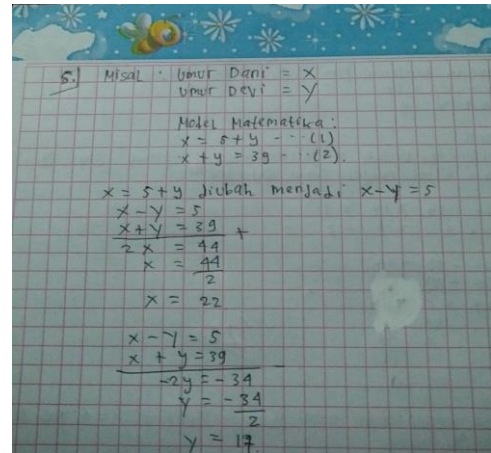 5.) Misal : Umur Dani = X
Umur Devi = Y
Model Matematika :
x = 5 + y ... (1)
x + y = 39 ... (2).
x = 5 + y diubah menjadi x - y = 5
x - y = 5
x + y = 39 +
2x = 44
x = 44
2
x = 22
x - y = 5
x + y = 39 -
-2y = -34
y = -34
2
y = 17